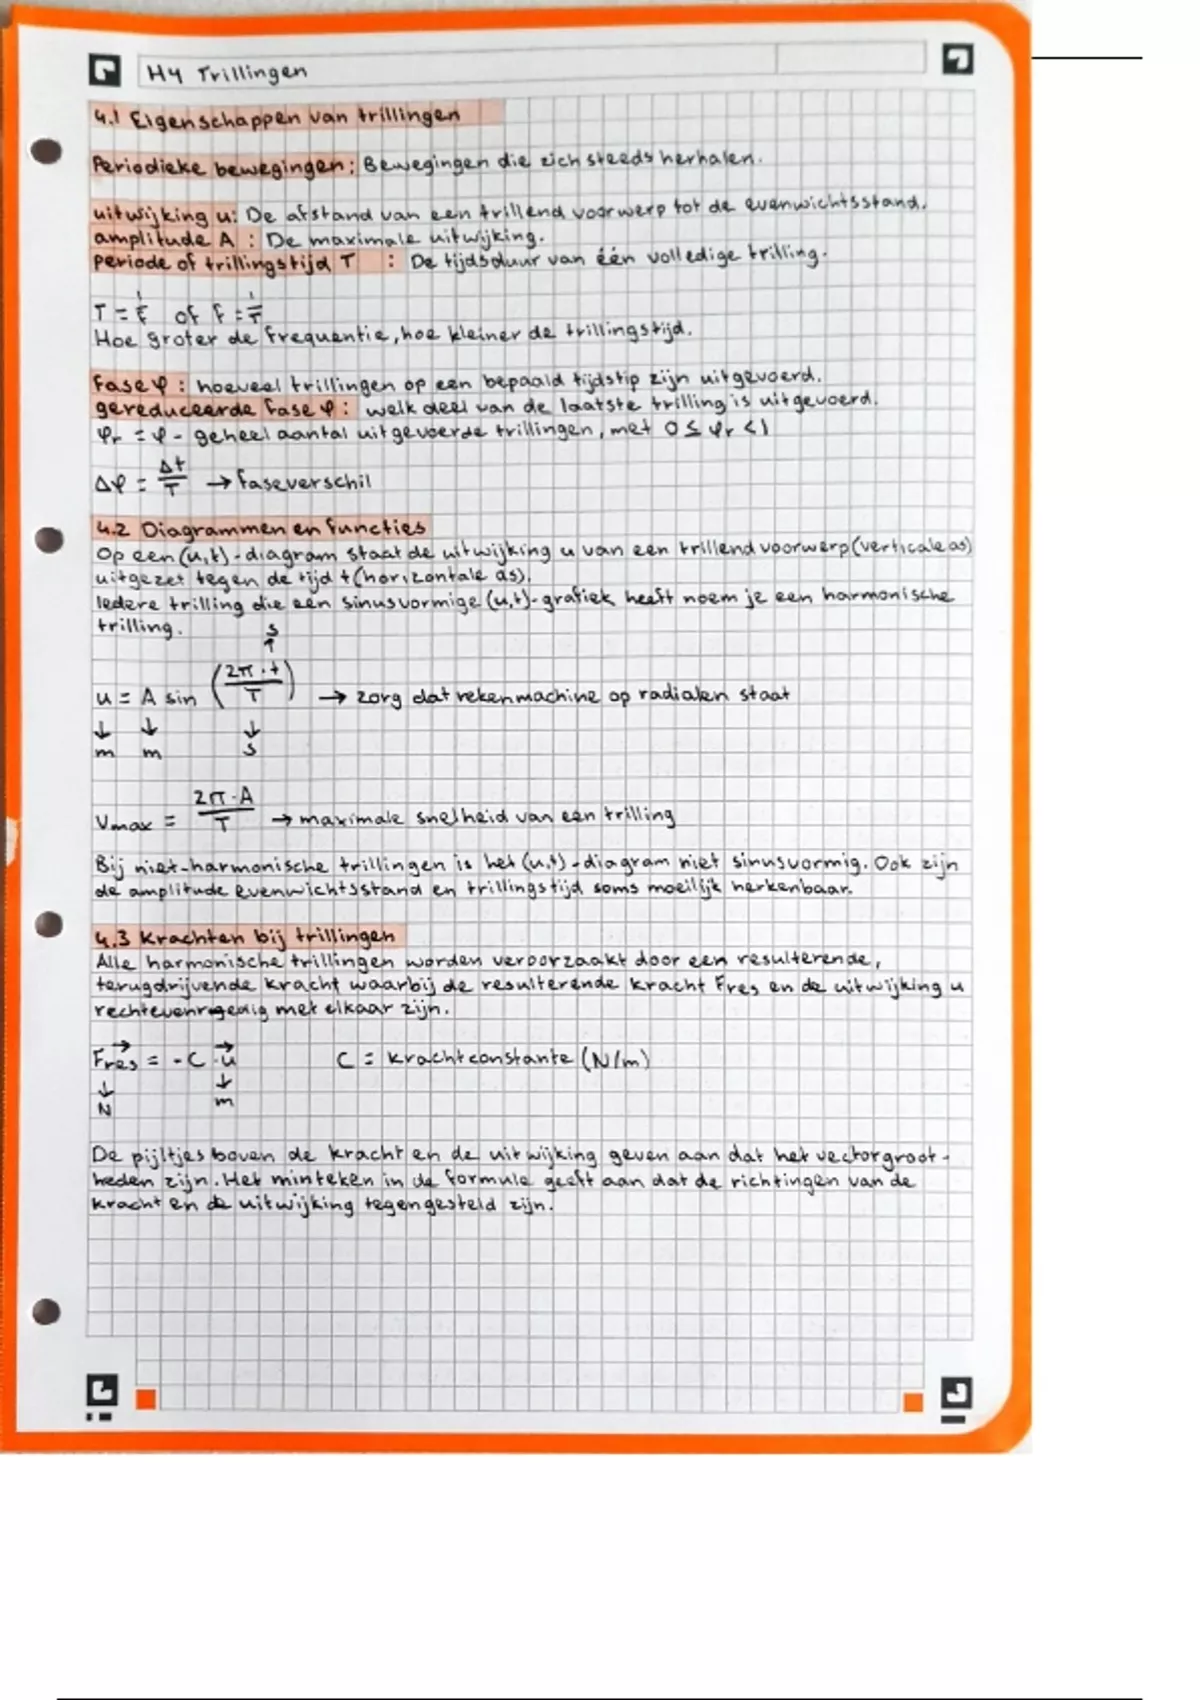 H4 Trillingen
4.1 Eigenschappen van trillingen
Periodieke bewegingen: Bewegingen die zich steeds herhalen.
uitwijking u: De afstand van een trillend voorwerp tot de evenwichtsstand.
amplitude A : De maximale uitwijking.
periode of trillingstijd T : De tijdsduur van één volledige trilling.
T = 1/f of f = 1/T
Hoe groter de frequentie, hoe kleiner de trillingstijd.
Fase φ : hoeveel trillingen op een bepaald tijdstip zijn uitgevoerd.
gereduceerde fase φ : welk deel van de laatste trilling is uitgevoerd.
φr = φ - geheel aantal uitgevoerde trillingen, met 0 ≤ φr < 1
Δφ = Δt/T → faseverschil
4.2 Diagrammen en functies
Op een (u,t)-diagram staat de uitwijking u van een trillend voorwerp (verticale as)
uitgezet tegen de tijd t (horizontale as).
Iedere trilling die een sinusvormige (u,t)-grafiek heeft noem je een harmonische
trilling.
s
↑
u = A sin (2π·t/T) → zorg dat rekenmachine op radialen staat
↓ ↓ ↓
m m s
Vmax = 2π·A/T → maximale snelheid van een trilling
Bij niet-harmonische trillingen is het (u,t)-diagram niet sinusvormig. Ook zijn
de amplitude evenwichtsstand en trillingstijd soms moeilijk herkenbaar.
4.3 Krachten bij trillingen
Alle harmonische trillingen worden veroorzaakt door een resulterende,
terugdrijvende kracht waarbij de resulterende kracht Fres en de uitwijking u
rechtevenredig met elkaar zijn.
→ →
Fres = -C·u C = krachtconstante (N/m)
↓ ↓
N m
De pijltjes boven de kracht en de uitwijking geven aan dat het vectorgroot-
heden zijn. Het minteken in de formule geeft aan dat de richtingen van de
kracht en de uitwijking tegengesteld zijn.